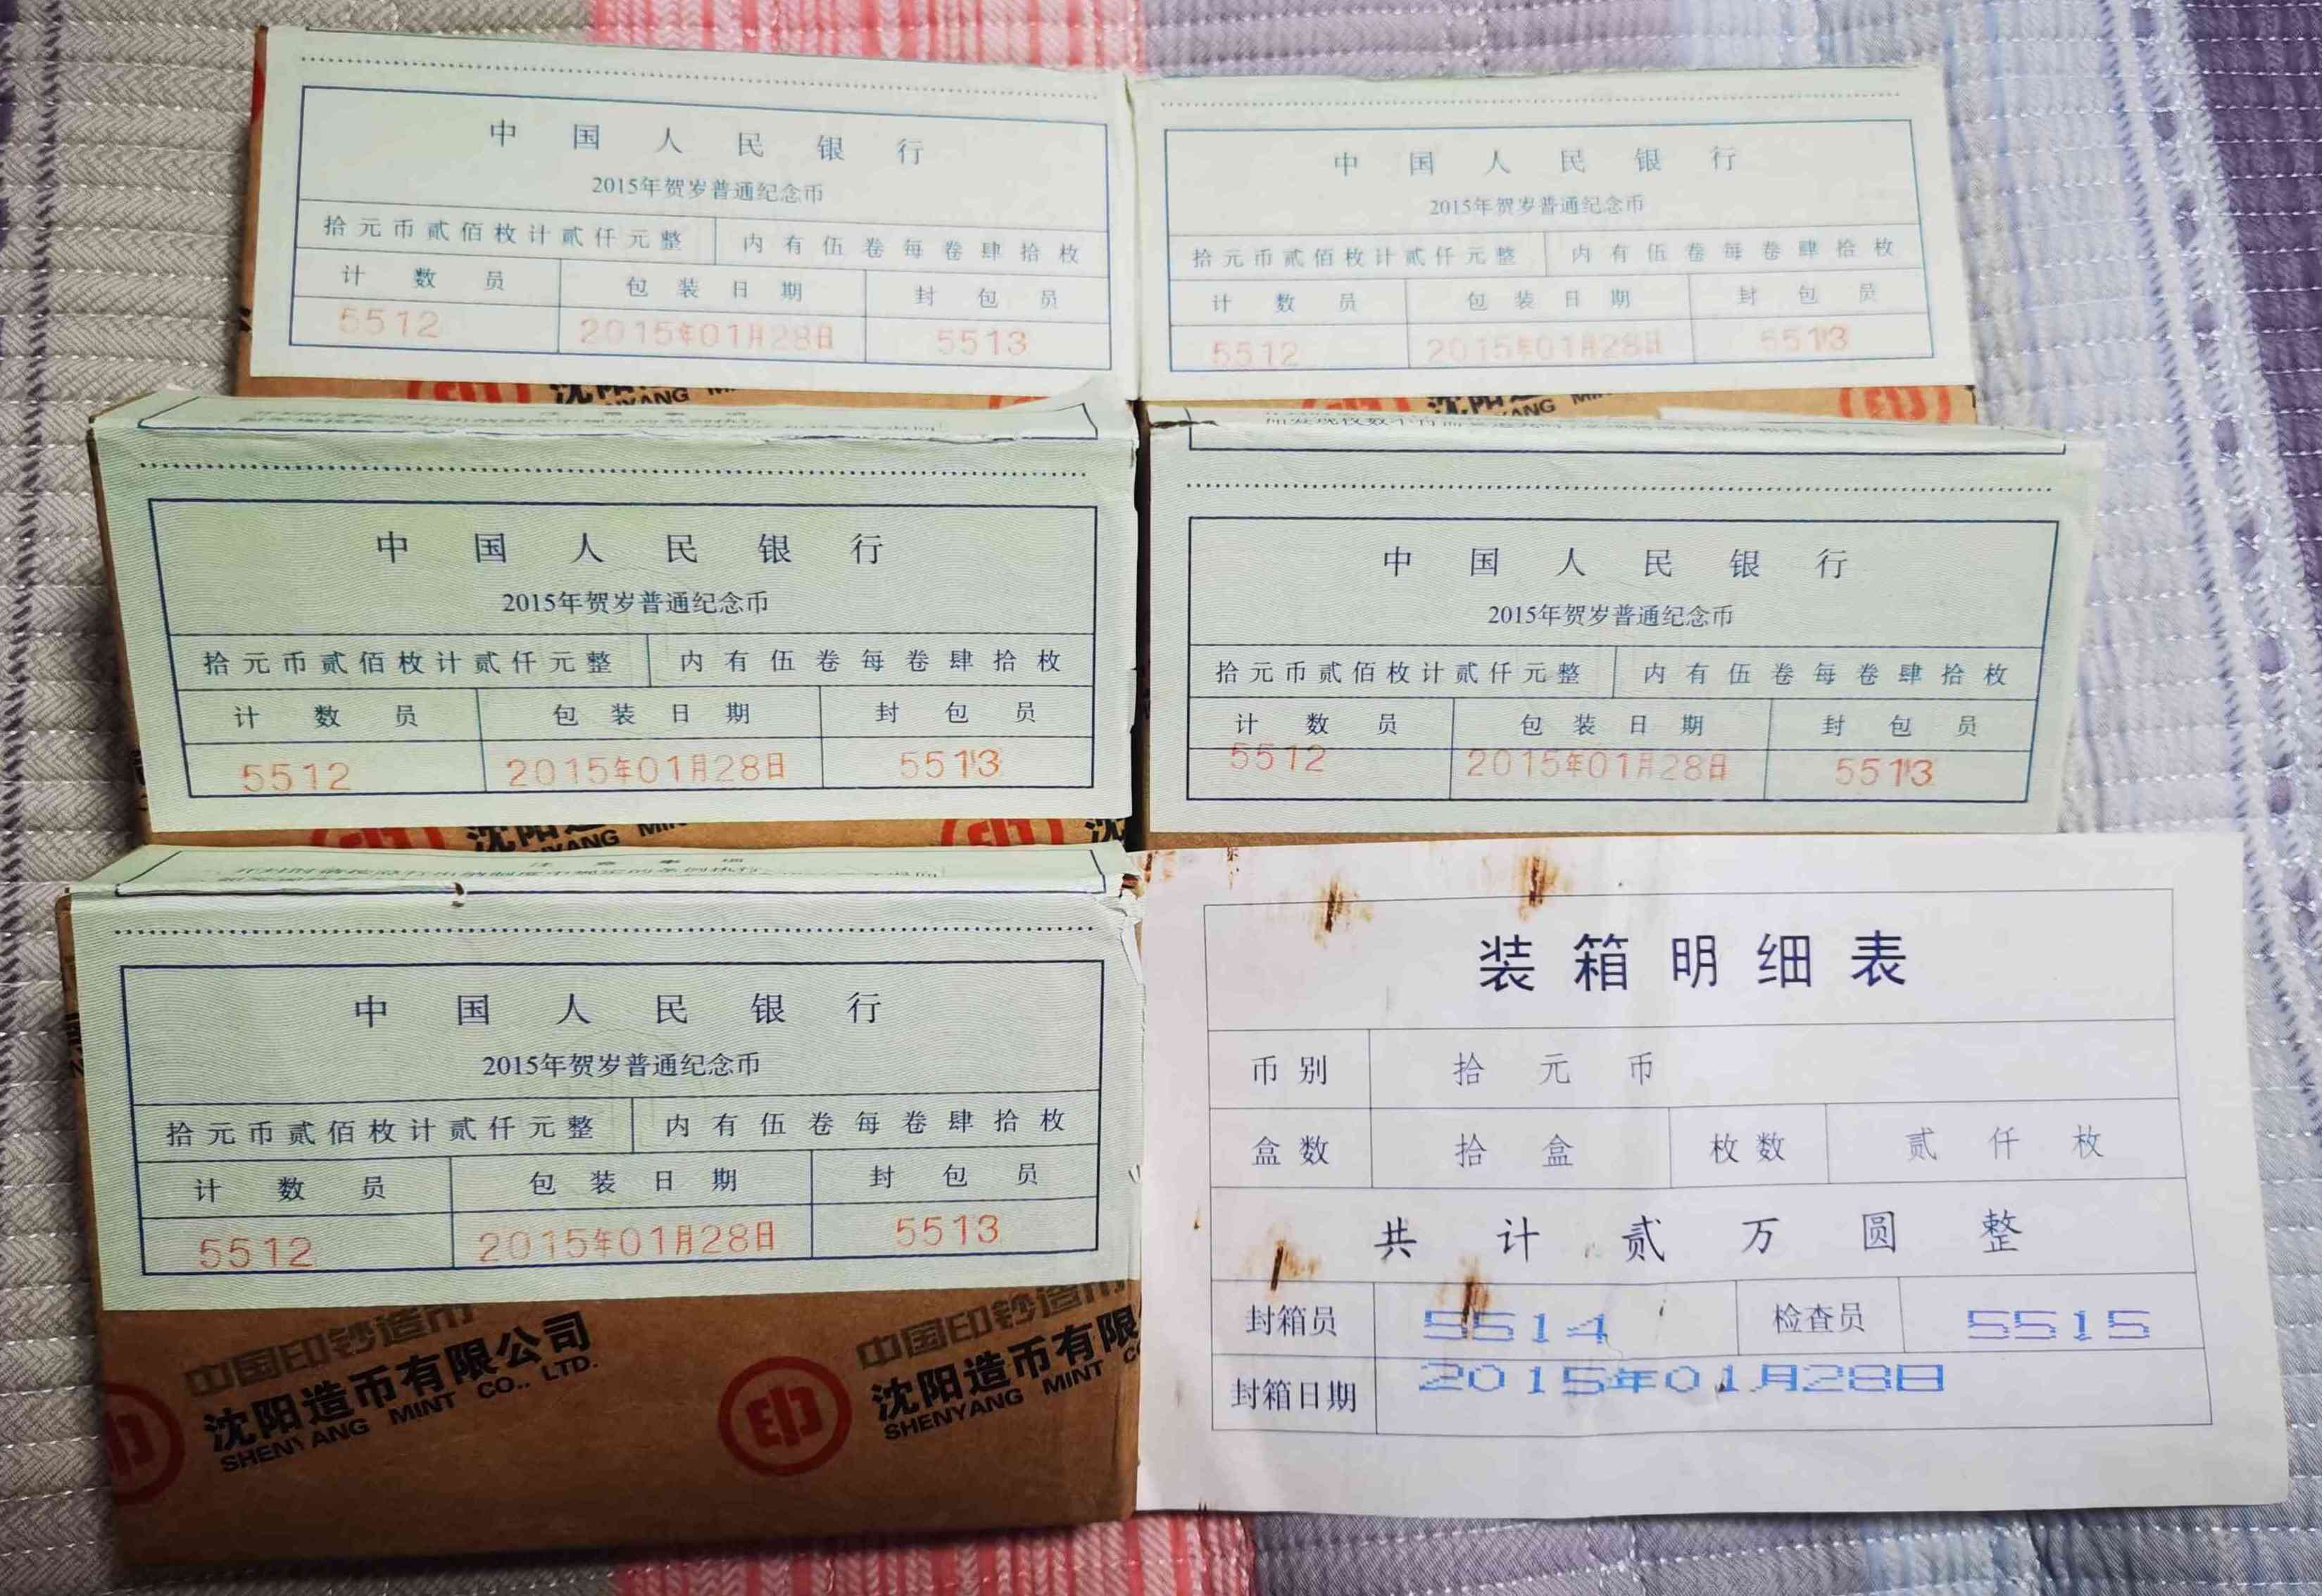 中国人民银行
2015年贺岁普通纪念币
拾元币贰佰枚计贰仟元整 内有伍卷每卷肆拾枚
计数员 包装日期 封包员
5512 2015年01月28日 5513
中国人民银行
2015年贺岁普通纪念币
拾元币贰佰枚计贰仟元整 内有伍卷每卷肆拾枚
计数员 包装日期 封包员
5512 2015年01月28日 5513
沈阳造
YANG
沈阳造
YANG
注意事项
中国人民银行
2015年贺岁普通纪念币
拾元币贰佰枚计贰仟元整 内有伍卷每卷肆拾枚
计数员 包装日期 封包员
5512 2015年01月28日 5513
中国人民银行
2015年贺岁普通纪念币
拾元币贰佰枚计贰仟元整 内有伍卷每卷肆拾枚
计数员 包装日期 封包员
5512 2015年01月28日 5513
沈阳造
YANG
沈
注意事项
中国人民银行
2015年贺岁普通纪念币
拾元币贰佰枚计贰仟元整 内有伍卷每卷肆拾枚
计数员 包装日期 封包员
5512 2015年01月28日 5513
中国印钞造币
沈阳造币有限公司
SHENYANG MINT CO., LTD.
中国印钞造币
沈阳造币有限
SHENYANG MINT C
装箱明细表
币别 拾元币
盒数 拾盒 枚数 贰仟枚
共计贰万圆整
封箱员 5514 检查员 5515
封箱日期 2015年01月28日